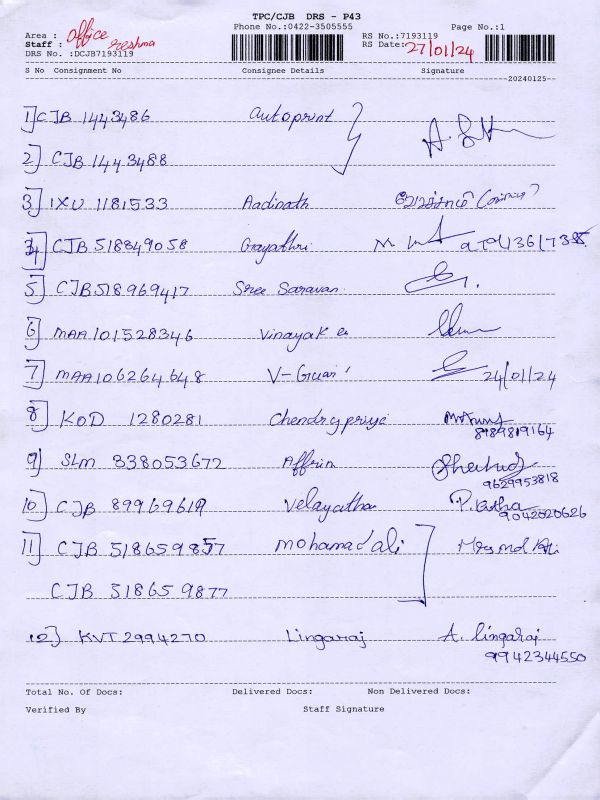 TPC/CJB DRS - P43
Phone No.:0422-3505555 Page No.:1
Area : Office
Staff : Reshma
RS No.:7193119
RS Date: 27/01/24
DRS No. :DCJB7193119
S No Consignment No Consignee Details Signature
20240125
1] CJB 1443486 Autoprint
2] CJB 1443488
3] IXU 1181533 Aadinath
4] CJB 518849058 Gayathri
5] CJB518969417 Sree Saravan
6] MAA101528346 Vinayak
7] MAA106264648 24/01/24
8] KOD 1280281 Chendrapriya
8989819164
9] SLM 338053672 Affrin
9629953818
10] CJB 89969619 Velayutha
9042020626
11] CJB 518659857 Mohamad ali
CJB 518659877
12] KVT 2994270 Lingaraj A. Lingaraj
9942344550
Total No. Of Docs: Delivered Docs: Non Delivered Docs:
Verified By Staff Signature